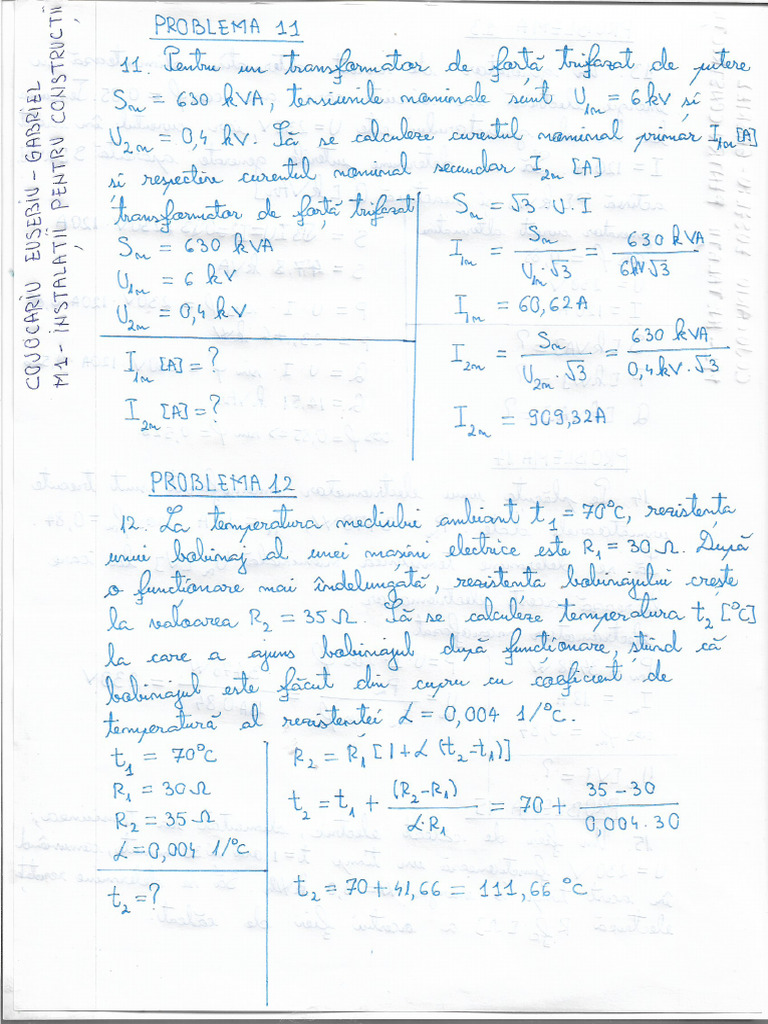 COJOCARIU EUSEBIU-GABRIEL
M1-INSTALAȚII PENTRU CONSTRUCȚII
PROBLEMA 11
11. Pentru un transformator de forță trifazat de putere
Sₙ = 630 kVA, tensiunile nominale sunt U₁ₙ = 6 kV și
U₂ₙ = 0,4 kV. Să se calculeze curentul nominal primar I₁ₙ [A]
și respectiv curentul nominal secundar I₂ₙ [A]
transformator de forță trifazat
Sₙ = 630 kVA
U₁ₙ = 6 kV
U₂ₙ = 0,4 kV
I₁ₙ [A] = ?
I₂ₙ [A] = ?
Sₙ = √3 · U · I
I₁ₙ = Sₙ / U₁ₙ·√3 = 630 kVA / 6kV√3
I₁ₙ = 60,62A
I₂ₙ = Sₙ / U₂ₙ·√3 = 630 kVA / 0,4kV·√3
I₂ₙ = 909,32A
PROBLEMA 12
12. La temperatura mediului ambiant t₁ = 70°C, rezistența
unui bobinaj al unei mașini electrice este R₁ = 30 Ω. După
o funcționare mai îndelungată, rezistența bobinajului crește
la valoarea R₂ = 35 Ω. Să se calculeze temperatura t₂ [°C]
la care a ajuns bobinajul după funcționare, știind că
bobinajul este făcut din cupru cu coeficient de
temperatură al rezistenței α = 0,004 1/°C.
t₁ = 70°C
R₁ = 30 Ω
R₂ = 35 Ω
α = 0,004 1/°C
t₂ = ?
R₂ = R₁ [1+α (t₂-t₁)]
t₂ = t₁ + (R₂-R₁) / α·R₁ = 70 + 35-30 / 0,004·30
t₂ = 70 + 41,66 = 111,66 °C